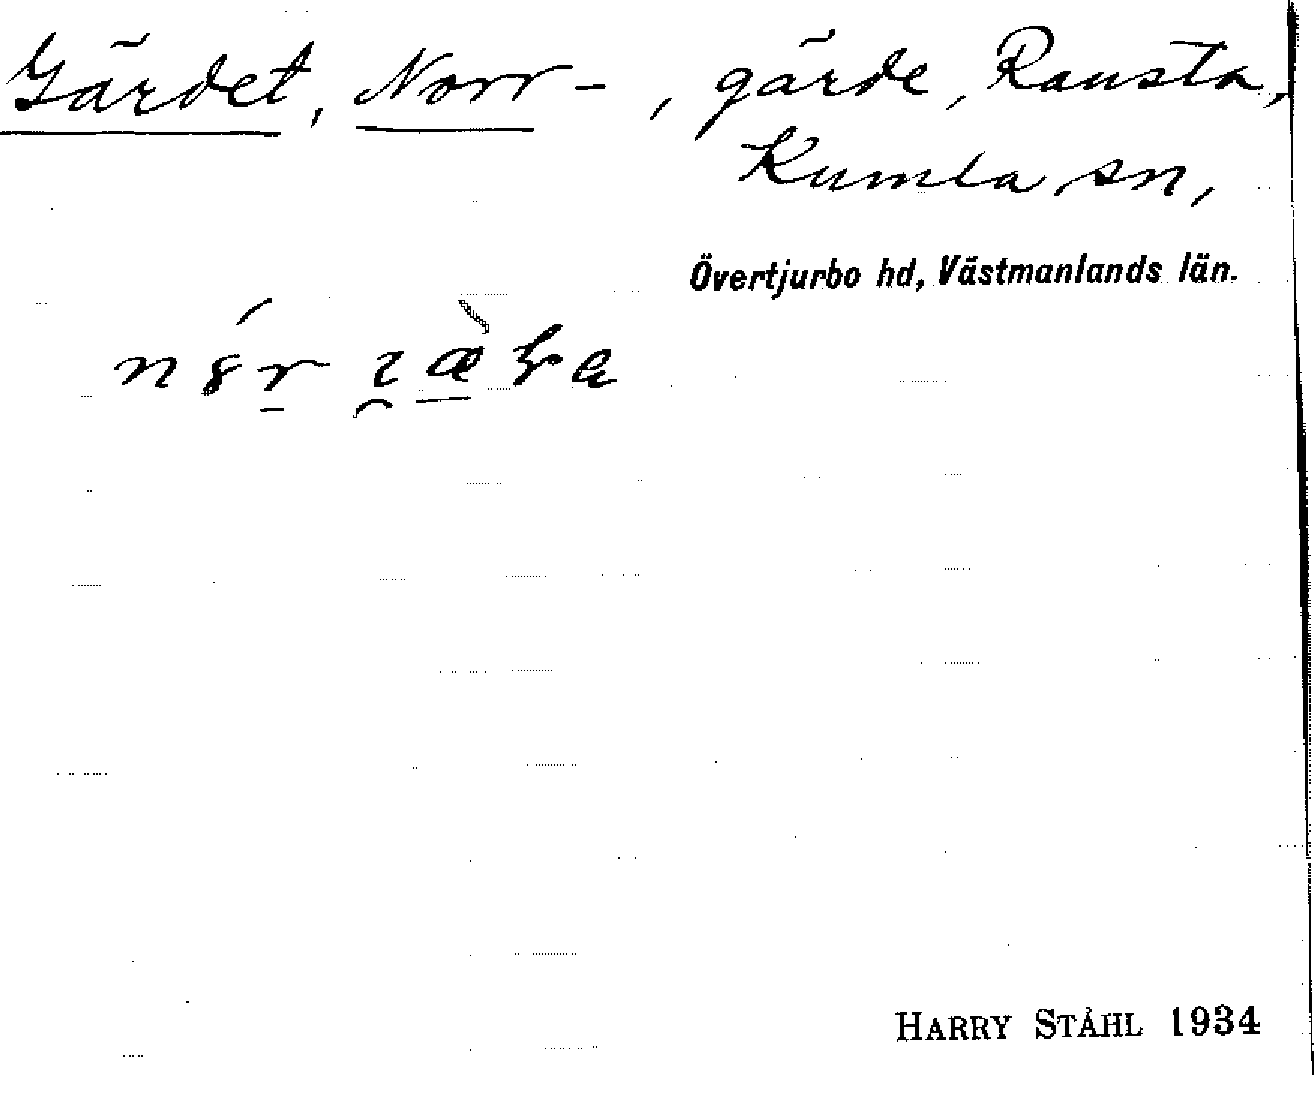 Gärdet, Norr-, gärde, Ransta,
Kumla sn,
Övertjurbo hd, Västmanlands län.
HARRY STÅHL 1934